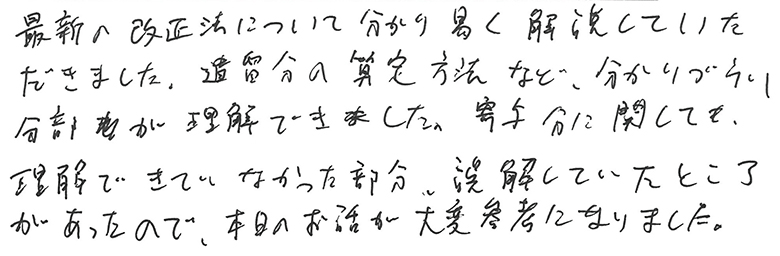 最新の改正法について分かり易く解説していた
だきました。遺留分の算定方法など、分かりづらい
部分が理解できました。寄与分に関しても、
理解できていなかった部分、誤解していたところ
があったので、本日のお話が大変参考になりました。